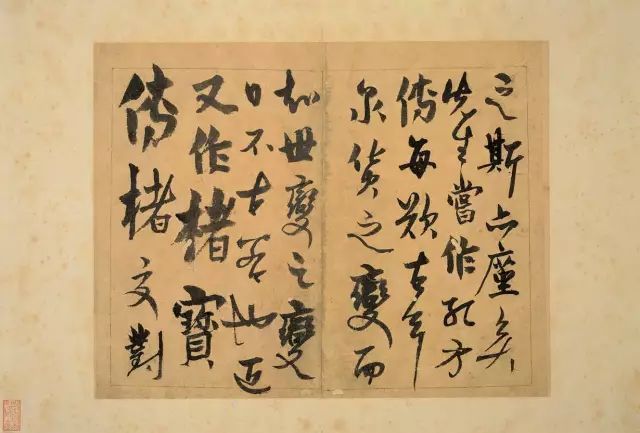 之斯座矣
先生嘗作孔方
傳每歎古今
泉貨之變而
知世變之變
日不古若也近
又作楮寶
傳楮對